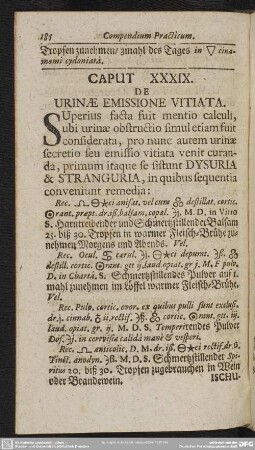 185 Compendium Practicum.
Tropfen zunehmen/ zwahl des Tages in ▽ cina-
momi cydoniatâ.
CAPUT XXXIX.
DE
URINÆ EMISSIONE VITIATA.
SUperius facta fuit mentio calculi,
ubi urinæ obstructio simul etiam fuit
considerata, pro nunc autem urinæ
secretio seu emissio vitiata venit curan-
da, primum itaque se sistunt DYSURIA
& STRANGURIA, in quibus sequentia
conveniunt remedia:
Rec. anisat. vel cum destillat. cortic.
arant. præpt. dr.ß. balsam. copal. M. D. in vitro
S. Harntreibender und Schmertzstillender Balsam
25. biß 30. Tropfen in warmer Fleisch-Brühe zu-
nehmen Morgens und Abends. Vel.
Rec. Ocul. depumt.
destill. cortic. laud. opiat. gr M. F. pulv.
D. in Chartâ. S. Schmertzstillendes Pulver auf 1.
mahl zunehmen im Löffel warmer Fleisch-Brühe.
Vel.
Rec. Pulv. cortic. ovor. ex quibus pulli sunt exclus.
cinnab. rectif. cortic. arant.
laud. opiat. gr. ij. M. D. S. Temperirendes Pulver
Dos. in cervisia calida manè & vesperi.
Rec. anticolic. D. M. rectif.
Tinct. anodyn. M. D. S. Schmertzstillender Spi-
ritus 20. biß 30. Tropfen zugebrauchen in Wein
oder Brandewein.
ISCHU-